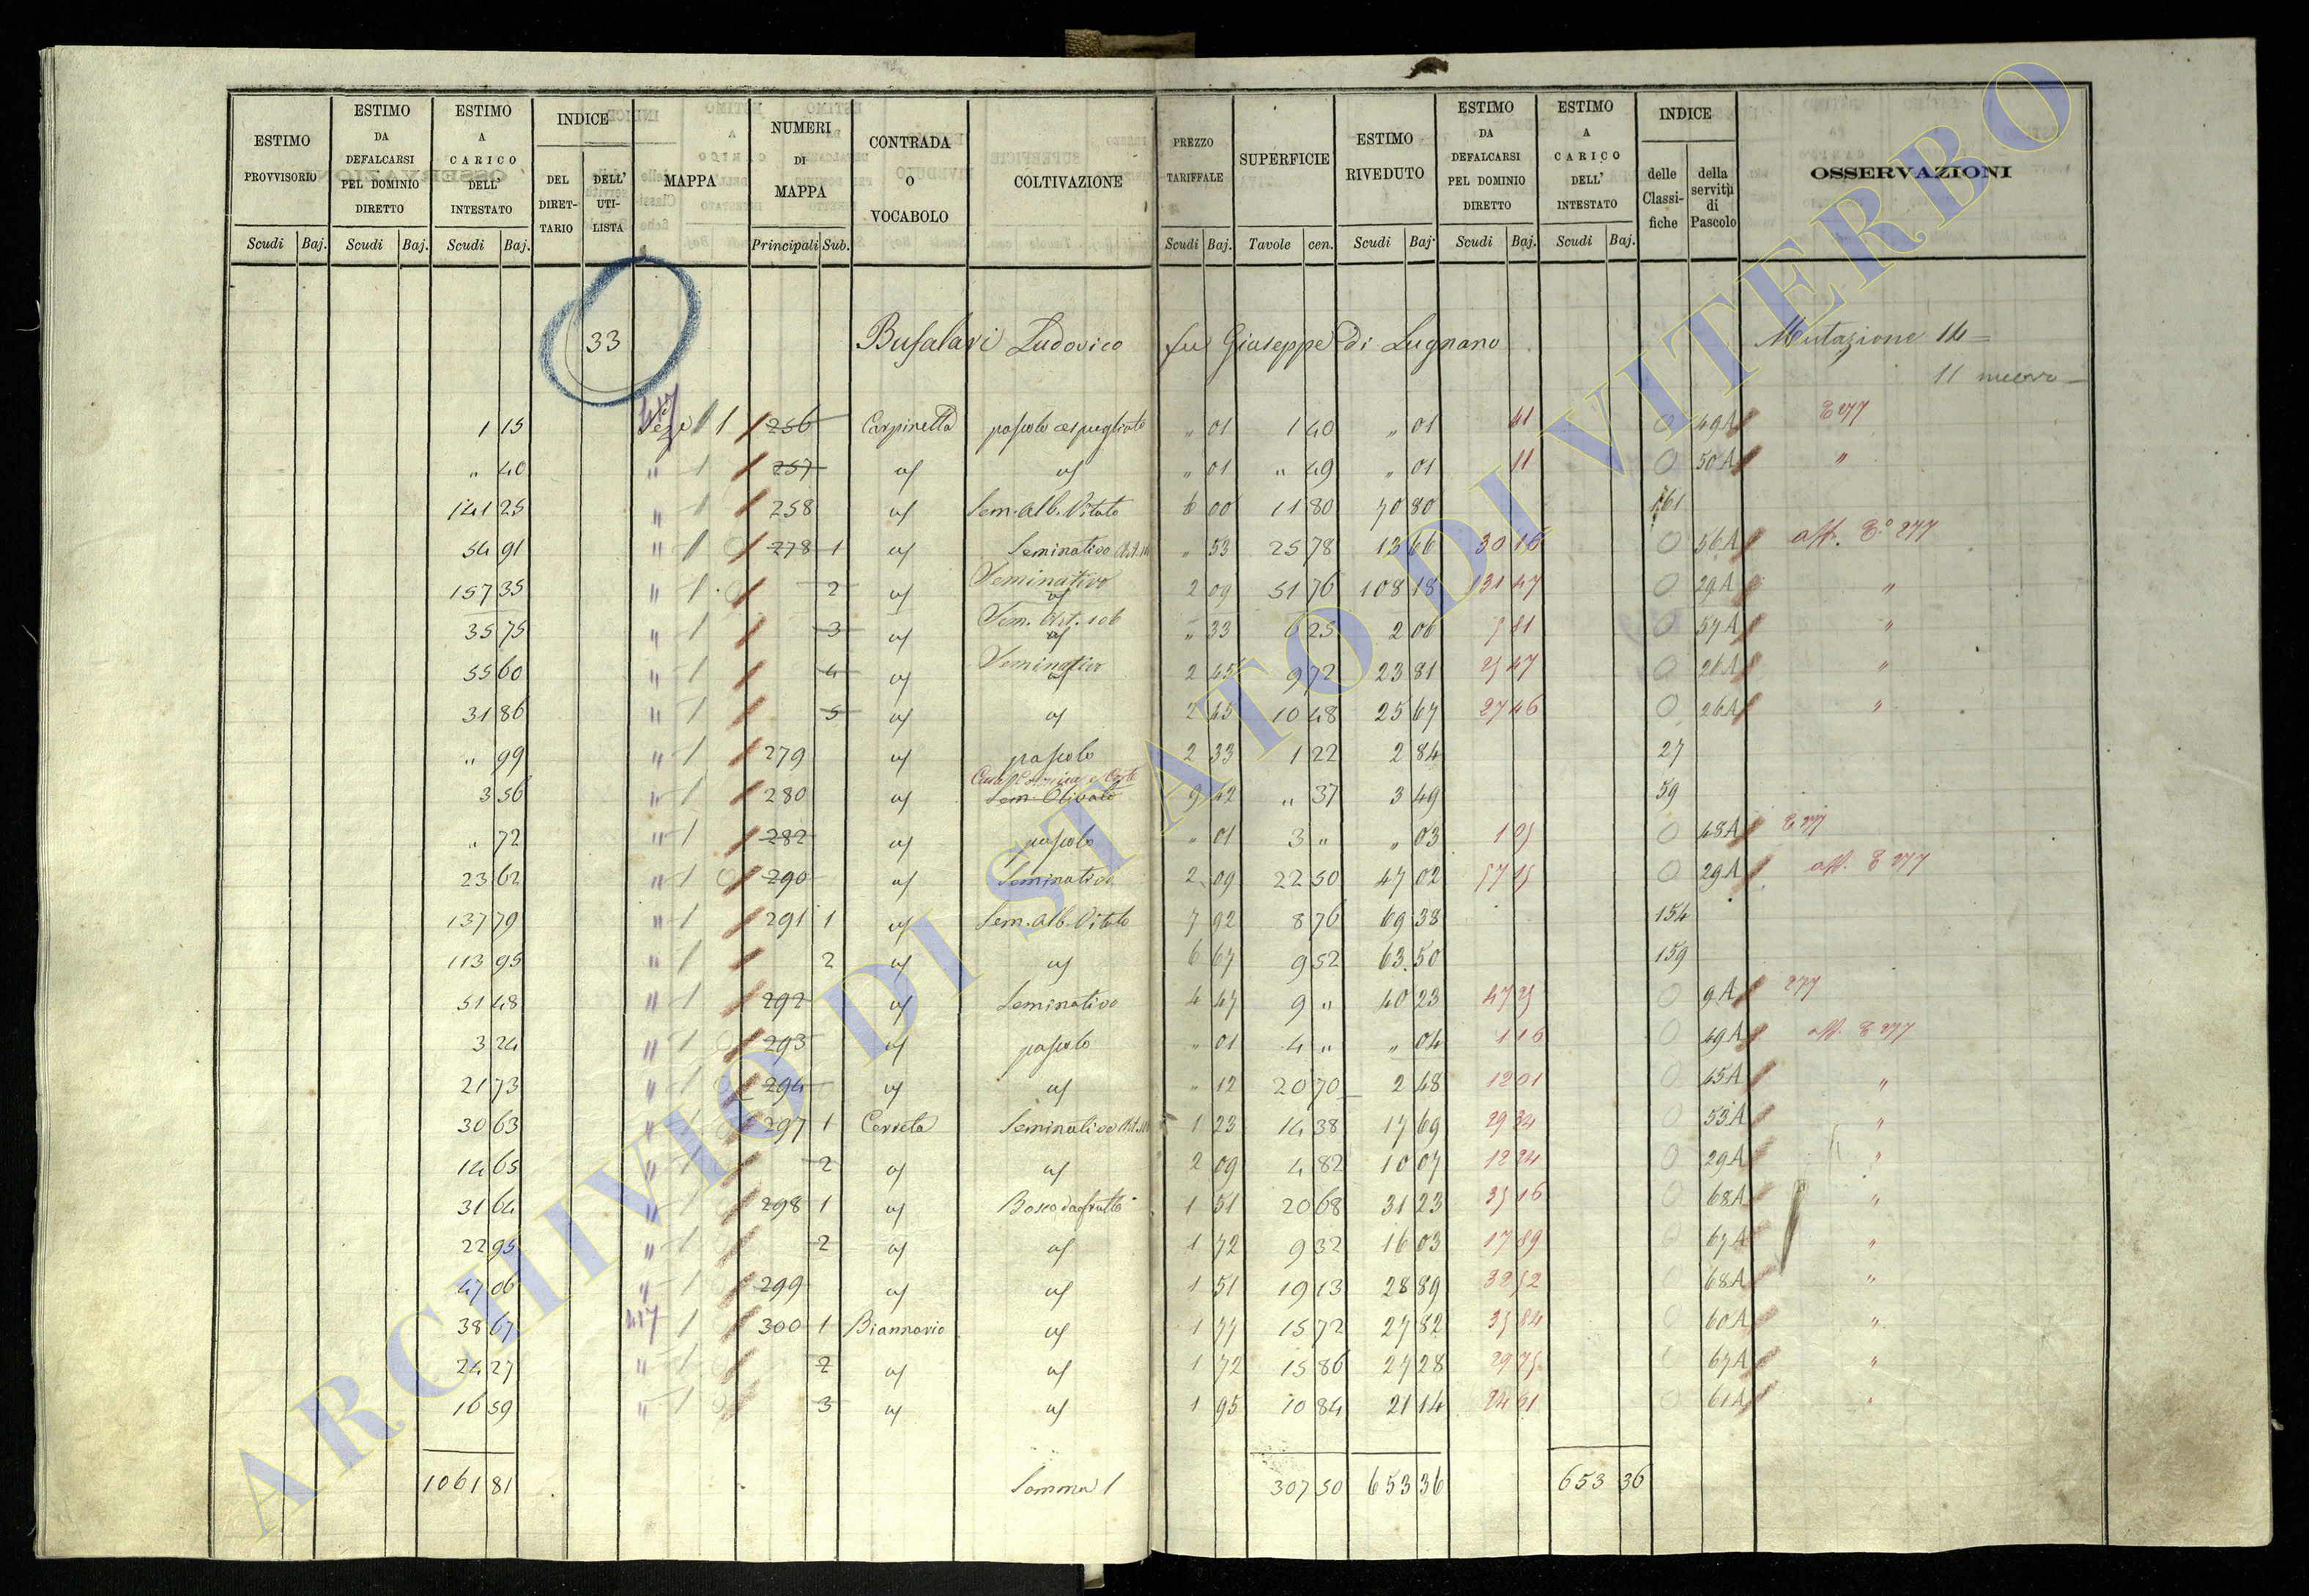 ESTIMO PROVVISORIO
ESTIMO DA DEFALCARSI PEL DOMINIO DIRETTO
ESTIMO A CARICO DELL' INTESTATO
INDICE
DEL DIRET-TARIO
DELL' UTI-LISTA
MAPPA
NUMERI DI MAPPA
CONTRADA O VOCABOLO
COLTIVAZIONE
PREZZO TARIFFALE
SUPERFICIE
ESTIMO RIVEDUTO
ESTIMO DA DEFALCARSI PEL DOMINIO DIRETTO
ESTIMO A CARICO DELL' INTESTATO
INDICE
delle Classi-fiche
della servitù di Pascolo
OSSERVAZIONI
Scudi Baj. Scudi Baj. Scudi Baj. Principali Sub. Scudi Baj. Tavole cen. Scudi Baj. Scudi Baj. Scudi Baj.
33 Bufalari Ludovico fu Giuseppe di Lugnano Mutazione 14
11
1 15 1 256 Carpinetta pascolo cespugliato " 01 1 40 " 01 41 0 49A E 277
" 40 " 1 257 " 01 " 49 " 01 11 0 50A "
141 25 " 1 258 Sem. Alb. Vitato 6 00 11 80 70 80 161
54 91 " 1 278 1 Seminativo " 53 25 78 13 66 30 16 0 56A aff. E° 277
157 35 " 1 2 Seminativo 2 09 51 76 108 18 131 47 0 29A "
35 75 " 1 3 Sem. Art. 106 " 33 6 25 2 06 0 57A "
55 60 " 1 4 Seminativo 2 45 9 72 23 81 25 47 0 26A "
31 86 " 1 5 2 45 10 48 25 67 27 46 0 26A "
" 99 " 1 279 pascolo 2 33 1 22 2 84 27
3 56 " 1 280 Sem. Olivato 9 42 " 37 3 49 59
" 72 " 1 282 pascolo " 01 3 " " 03 0 48A E 277
23 62 " 1 290 Seminativo 2 09 22 50 47 02 0 29A aff. E 277
137 79 " 1 291 1 Sem. Alb. Vitato 7 92 8 76 69 38 154
113 95 " 1 2 6 67 9 52 63 50 159
51 48 " 1 292 Seminativo 4 47 9 " 40 23 47 25 0 9A 277
3 24 " 1 293 pascolo " 01 4 " " 04 1 16 0 49A aff. E 277
21 73 " 1 294 " 12 20 70 2 48 12 01 0 45A "
30 63 " 1 297 1 Cerreta Seminativo 1 23 14 38 17 69 29 34 0 53A "
14 65 " 1 2 2 09 4 82 10 07 12 24 0 29A "
31 64 " 1 298 1 Bosco da frutto 1 51 20 68 31 23 35 16 0 68A "
22 95 " 1 2 1 72 9 32 16 03 17 89 0 67A "
47 06 " 1 299 1 51 19 13 28 89 32 52 0 68A "
38 67 417 1 300 1 1 77 15 72 27 82 0 60A "
24 27 " 1 2 1 72 15 86 27 28 29 75 0 67A "
16 59 " 1 3 1 95 10 84 21 14 0 61A "
1061 81 Somma 307 50 653 36 653 36
ARCHIVIO DI STATO DI VITERBO